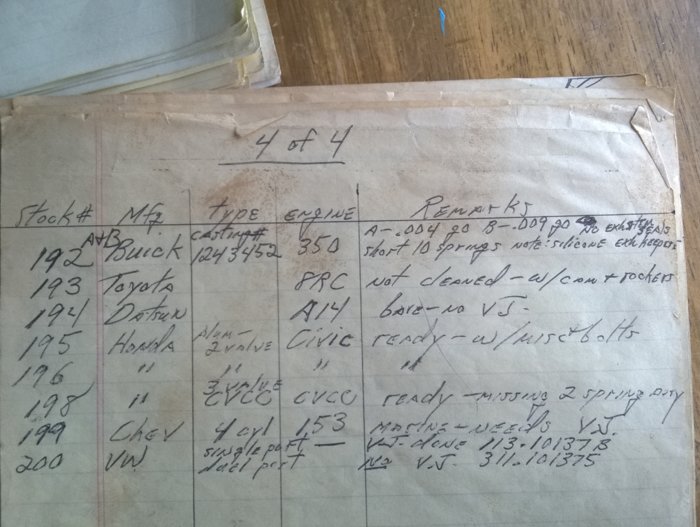 4 of 4
Stock# Mfg type engine Remarks
A+B casting# A-.004 go B-.009 go No exh stem seals
192 Buick 1243452 350 short 10 springs note: silicone exh keepers
193 Toyota 8RC not cleaned - w/cam + rockers
194 Datsun A14 bare - no V.J.
195 Honda Alum- 2 valve Civic ready - w/misc bolts
196 " " " "
198 " 3 valve CVCC CVCC ready - missing 2 spring assy
199 Chev 4 cyl 153 marine - needs V.J.
single port — V.J. done 113.101371B
200 VW duel port No V.J. 311.101375